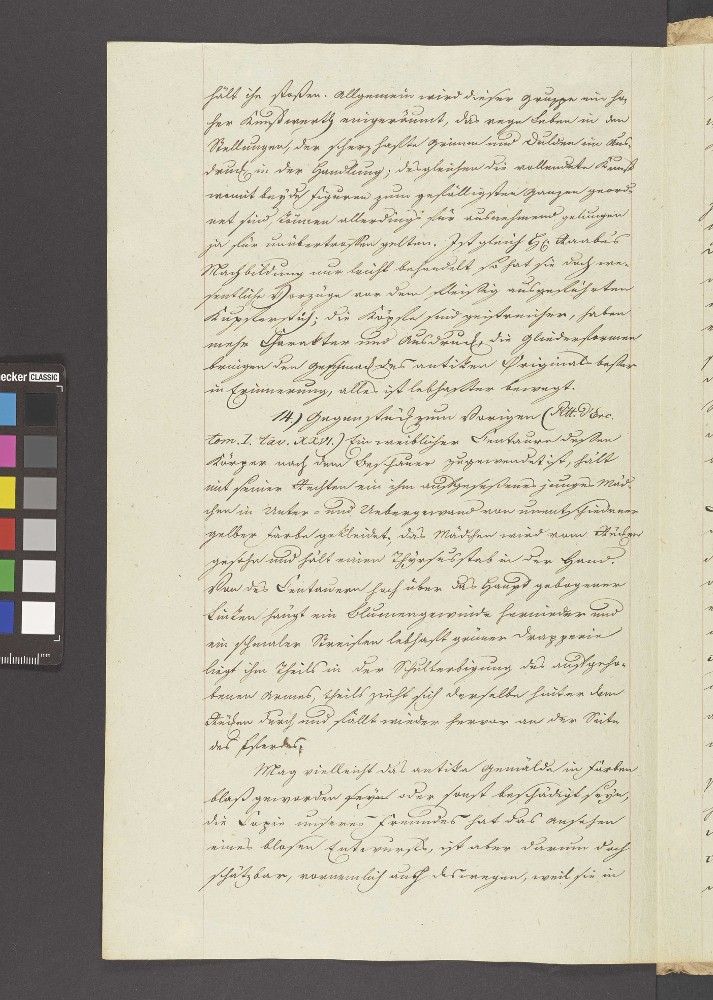 hält ihn stoßen. Allgemein wird dieser Gruppe ein ho-
her Kunstwerth eingeräumt, das rege Leben in den
Stellungen, der scherzhafte Grimm und Dulden im Aus-
druck, in der Handlung; desgleichen die vollendete Kunst
womit beyde Figuren zum gefälligsten Ganzen geord-
net sind, können allerdings für ausnehmend gelungen
ja für unübertroffen gelten. Ist gleich H. Raabes
Nachbildung nur leicht behandelt, so hat sie doch we-
sentliche Vorzüge vor dem fleißig ausgeführten
Kupferstich; die Köpfe sind geistreicher, haben
mehr Charakter und Ausdruck, die Gliederformen
bringen den Geschmack des antiken Originals besser
in Erinnerung, alles ist lebhafter bewegt.
14.) Gegenstück zum Vorigen (Pitt. d'Erc.
tom. I. tav. XXVI.) Ein weiblicher Centaur dessen
Körper nach dem Beschauer zugewendet ist, hält
mit seiner Rechten ein ihm aufgesessenes junges Mäd-
chen in Unter- und Uebergewand von unentschiedener
gelber Farbe gekleidet, das Mädchen wird vom Rücken
gesehn und hält einen Thyrsusstab in der Hand.
Von des Centauren hoch über das Haupt gebogener
Linken hängt ein Blumengewinde hernieder und
ein schmaler Streifen lebhaft grüner Drapperie
liegt ihm theils in der Schulterbiegung des aufgeho-
benen Armes, theils zieht sich derselbe hinter dem
Rücken durch und fällt wieder hervor an der Seite
des Pferdes.
Mag vielleicht das antike Gemälde in Farben
blaß geworden seyn oder sonst beschädigt seyn,
die Copie unseres Freundes hat das Ansehen
eines blosen Entwurfs, ist aber darum doch
schätzbar, vornemlich auch deswegen, weil sie in